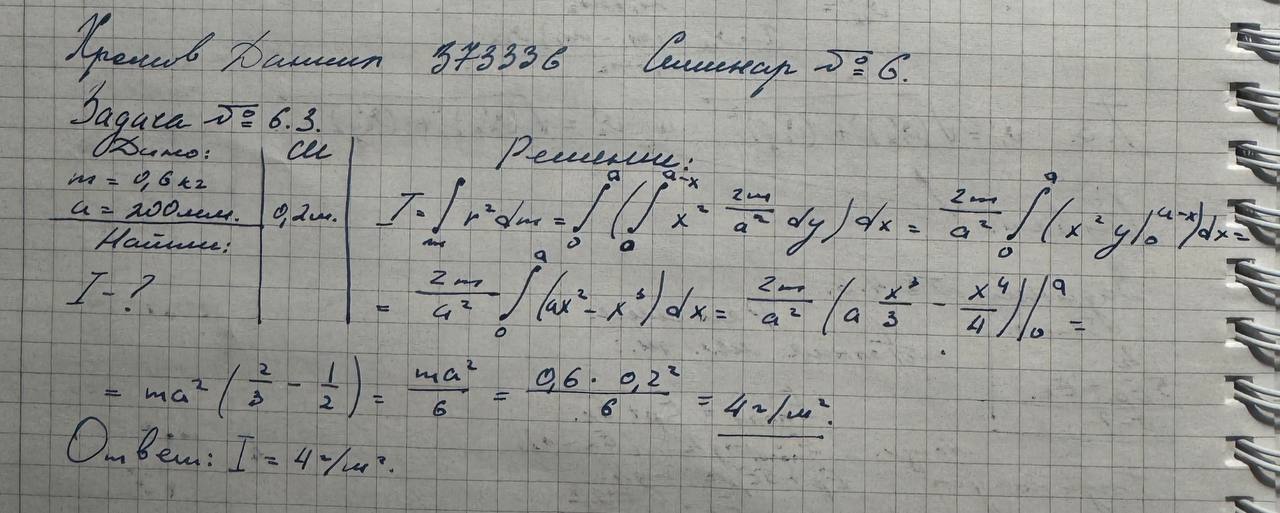 Хромов Даниил 373336 Семинар № 6.
Задача № 6.3.
Дано: СИ Решение:
m = 0,6 кг
a = 200 мм. 0,2 м. I = ∫_m r² dm = ∫_0^a (∫_0^{a-x} x² 2m/a² dy) dx = 2m/a² ∫_0^a (x² y|_0^{a-x}) dx =
Найти:
I - ? = 2m/a² ∫_0^a (ax² - x³) dx = 2m/a² (a x³/3 - x⁴/4)|_0^a =
= ma² (2/3 - 1/2) = ma²/6 = 0,6 · 0,2²/6 = 4 г/м².
Ответ: I = 4 г/м².